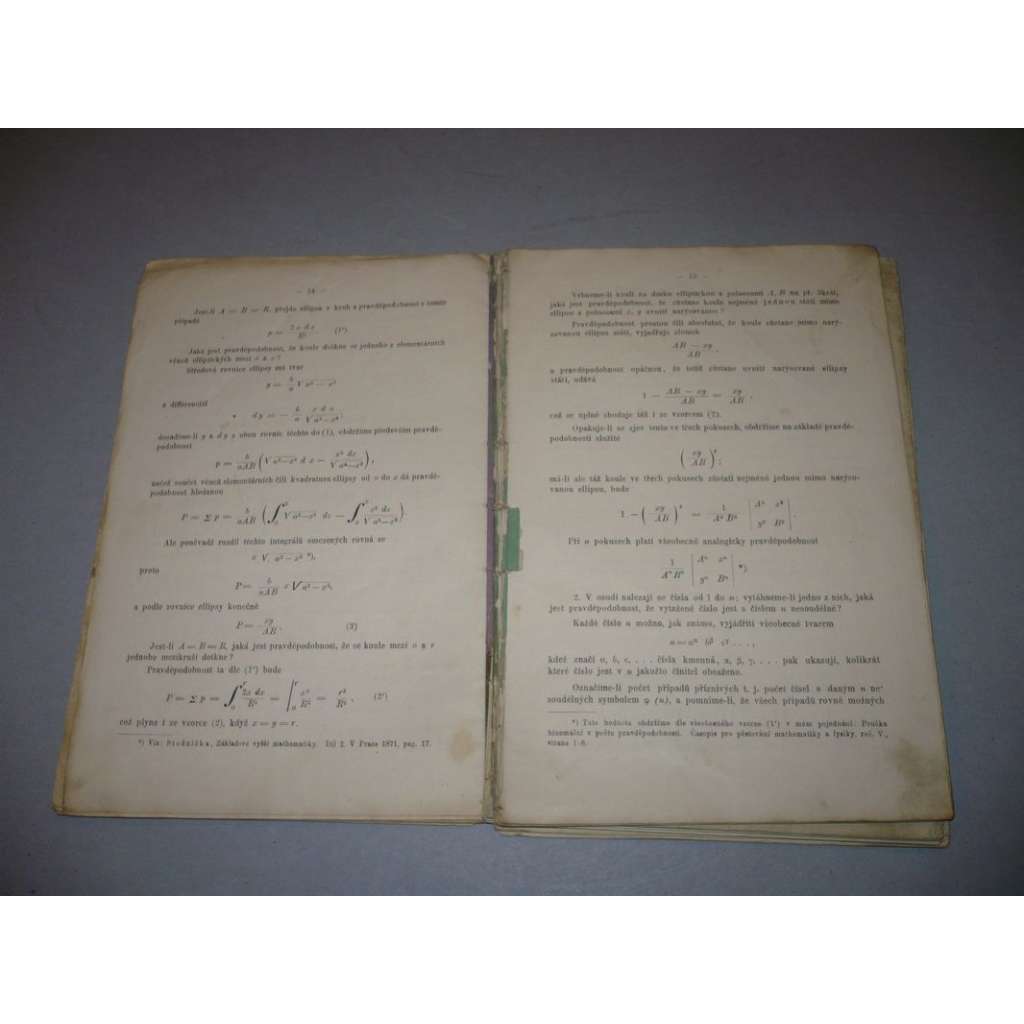 — 14 —
Jest-li A = B = R, přejde ellipsa v kruh a pravděpodobnost v tomto
případě
p = 2x dx / R² . (1')
Jaká jest pravděpodobnost, že koule dotkne se jednoho z elementárních
věnců elliptických mezi o a x?
Středová rovnice ellipsy má tvar
y = b/a √a² — x²
a differenciál
dy = — b/a x dx / √a²—x² ,
dosadíme-li y a dy z obou rovnic těchto do (1), obdržíme především pravdě-
podobnost
p = b/aAB (√a²—x² dx — x² dx / √a²—x²),
načež součet věnců elementárních čili kvadratura ellipsy od o do x dá pravdě-
podobnost hledanou
P = Σ p = b/aAB (∫ √a²—x² dx — ∫ x² dx / √a²—x²).
Ale poněvadž rozdíl těchto integrálů omezených rovná se
x √ a² — x² *),
proto
P = b/aAB x √a² — x²,
a podle rovnice ellipsy konečně
P = xy/AB . (2)
Jest-li A = B = R, jaká jest pravděpodobnost, že se koule mezi o a r
jednoho mezikruží dotkne?
Pravděpodobnost ta dle (1') bude
P = Σ p = ∫₀ʳ 2x dx / R² = |₀ʳ x²/R² = r²/R² , (2')
což plyne i ze vzorce (2), když x = y = r.
*) Viz: Studnička, Základové vyšší mathematiky. Díl 2. V Praze 1871, pag. 17.
— 15 —
Vrhneme-li kouli na desku elliptickou o poloosách A, B na př. 3krát,
jaká jest pravděpodobnost, že zůstane koule nejméně jednou státi mimo
ellipsu o poloosách x, y uvnitř narýsovanou?
Pravděpodobnost prostou čili absolutní, že koule zůstane mimo narý-
sovanou ellipsu státi, vyjadřuje zlomek
AB — xy / AB ,
a pravděpodobnost opáčnou, že totiž zůstane uvnitř narýsované ellipsy
státi, udává
1 — AB — xy / AB = xy / AB ,
což se úplně shoduje též i ze vzorcem (2).
Opakuje-li se zjev tento ve třech pokusech, obdržíme na základě pravdě-
podobnosti složité
( xy / AB )³ ;
má-li ale táž koule ve třech pokusech zůstati nejméně jednou mimo narýso-
vanou ellipsu, bude
1 — ( xy / AB )³ = 1 / A³ B³ | A³ x³ y³ B³ | .
Při n pokusech platí všeobecně analogicky pravděpodobnost
1 / Aⁿ Bⁿ | Aⁿ xⁿ yⁿ Bⁿ | *)
2. V osudí nalezají se čísla od 1 do n; vytáhneme-li jedno z nich, jaká
jest pravděpodobnost, že vytažené číslo jest s číslem n nesoudělné?
Každé číslo n možno, jak známo, vyjádřiti všeobecně tvarem
n = aᵅ bᵝ cᵞ . . . ,
kdež značí a, b, c, . . . čísla kmenná, α, β, γ, . . . pak ukazují, kolikrát
které číslo jest v n jakožto činitel obsaženo.
Označíme-li počet případů příznivých t. j. počet čísel s daným n ne-
soudělných symbolem φ (n), a pomníme-li, že všech případů rovně možných
*) Tuto hodnotu obdržíme dle všeobecného vzorce (1') v mém pojednání: Poučka
binomální v počtu pravděpodobnosti. Časopis pro pěstování mathematiky a fysiky, roč. V.,
strana 1–6.